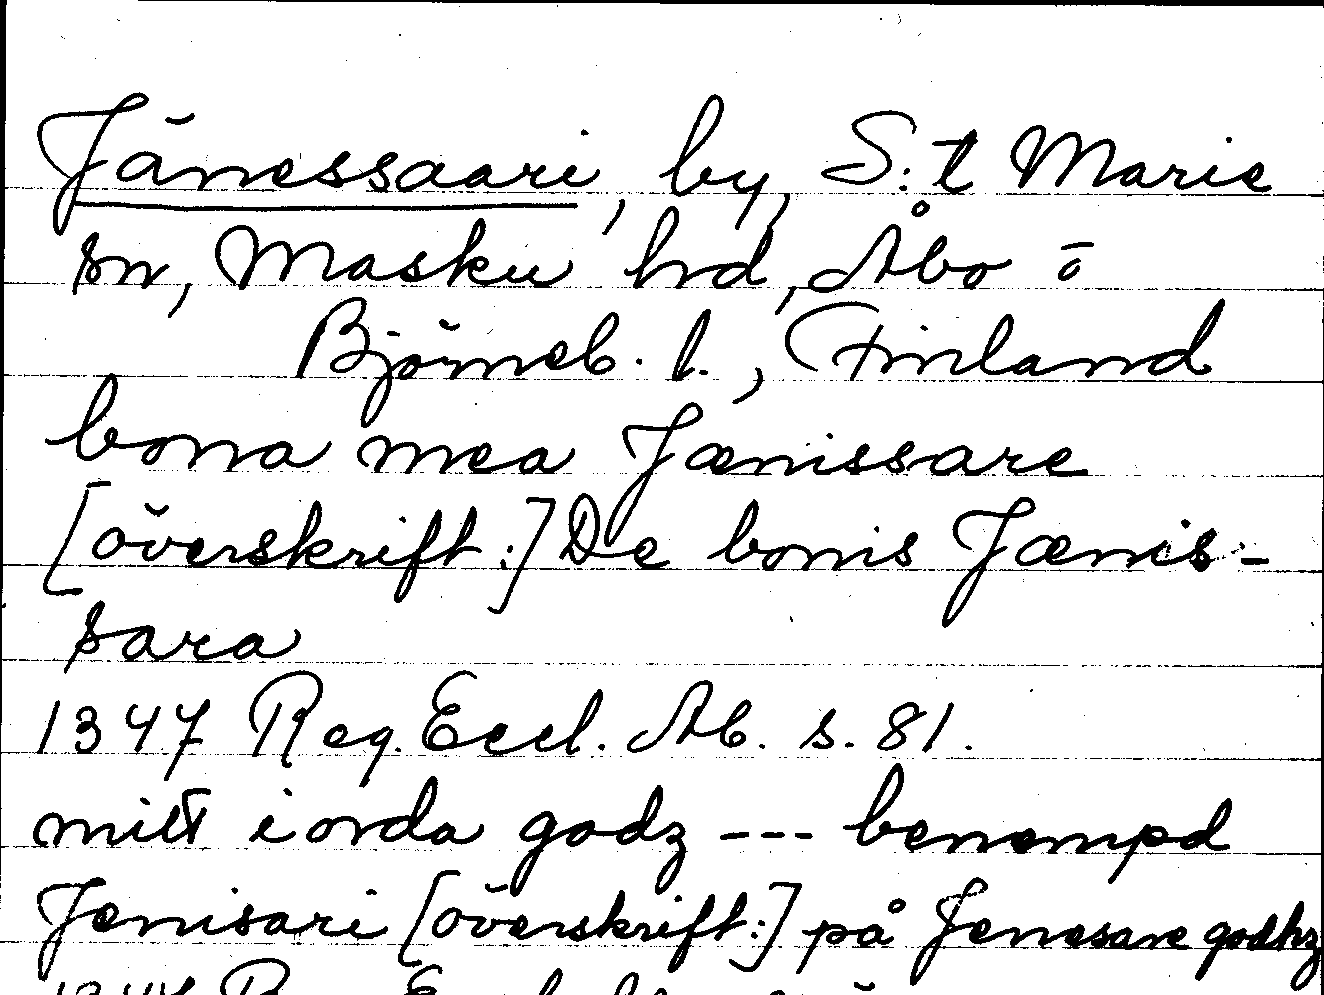 Jänessaari, by, S:t Marie
sn, Masku hd, Åbo o
Björneb. l., Finland
bona mea Jænissare
[överskrift:] De bonis Jænis-
sara
1347 Reg. Eccl. Ab. s. 81.
mitt iorda godz --- benempd
Jenisari [överskrift:] på Jenesare godhz